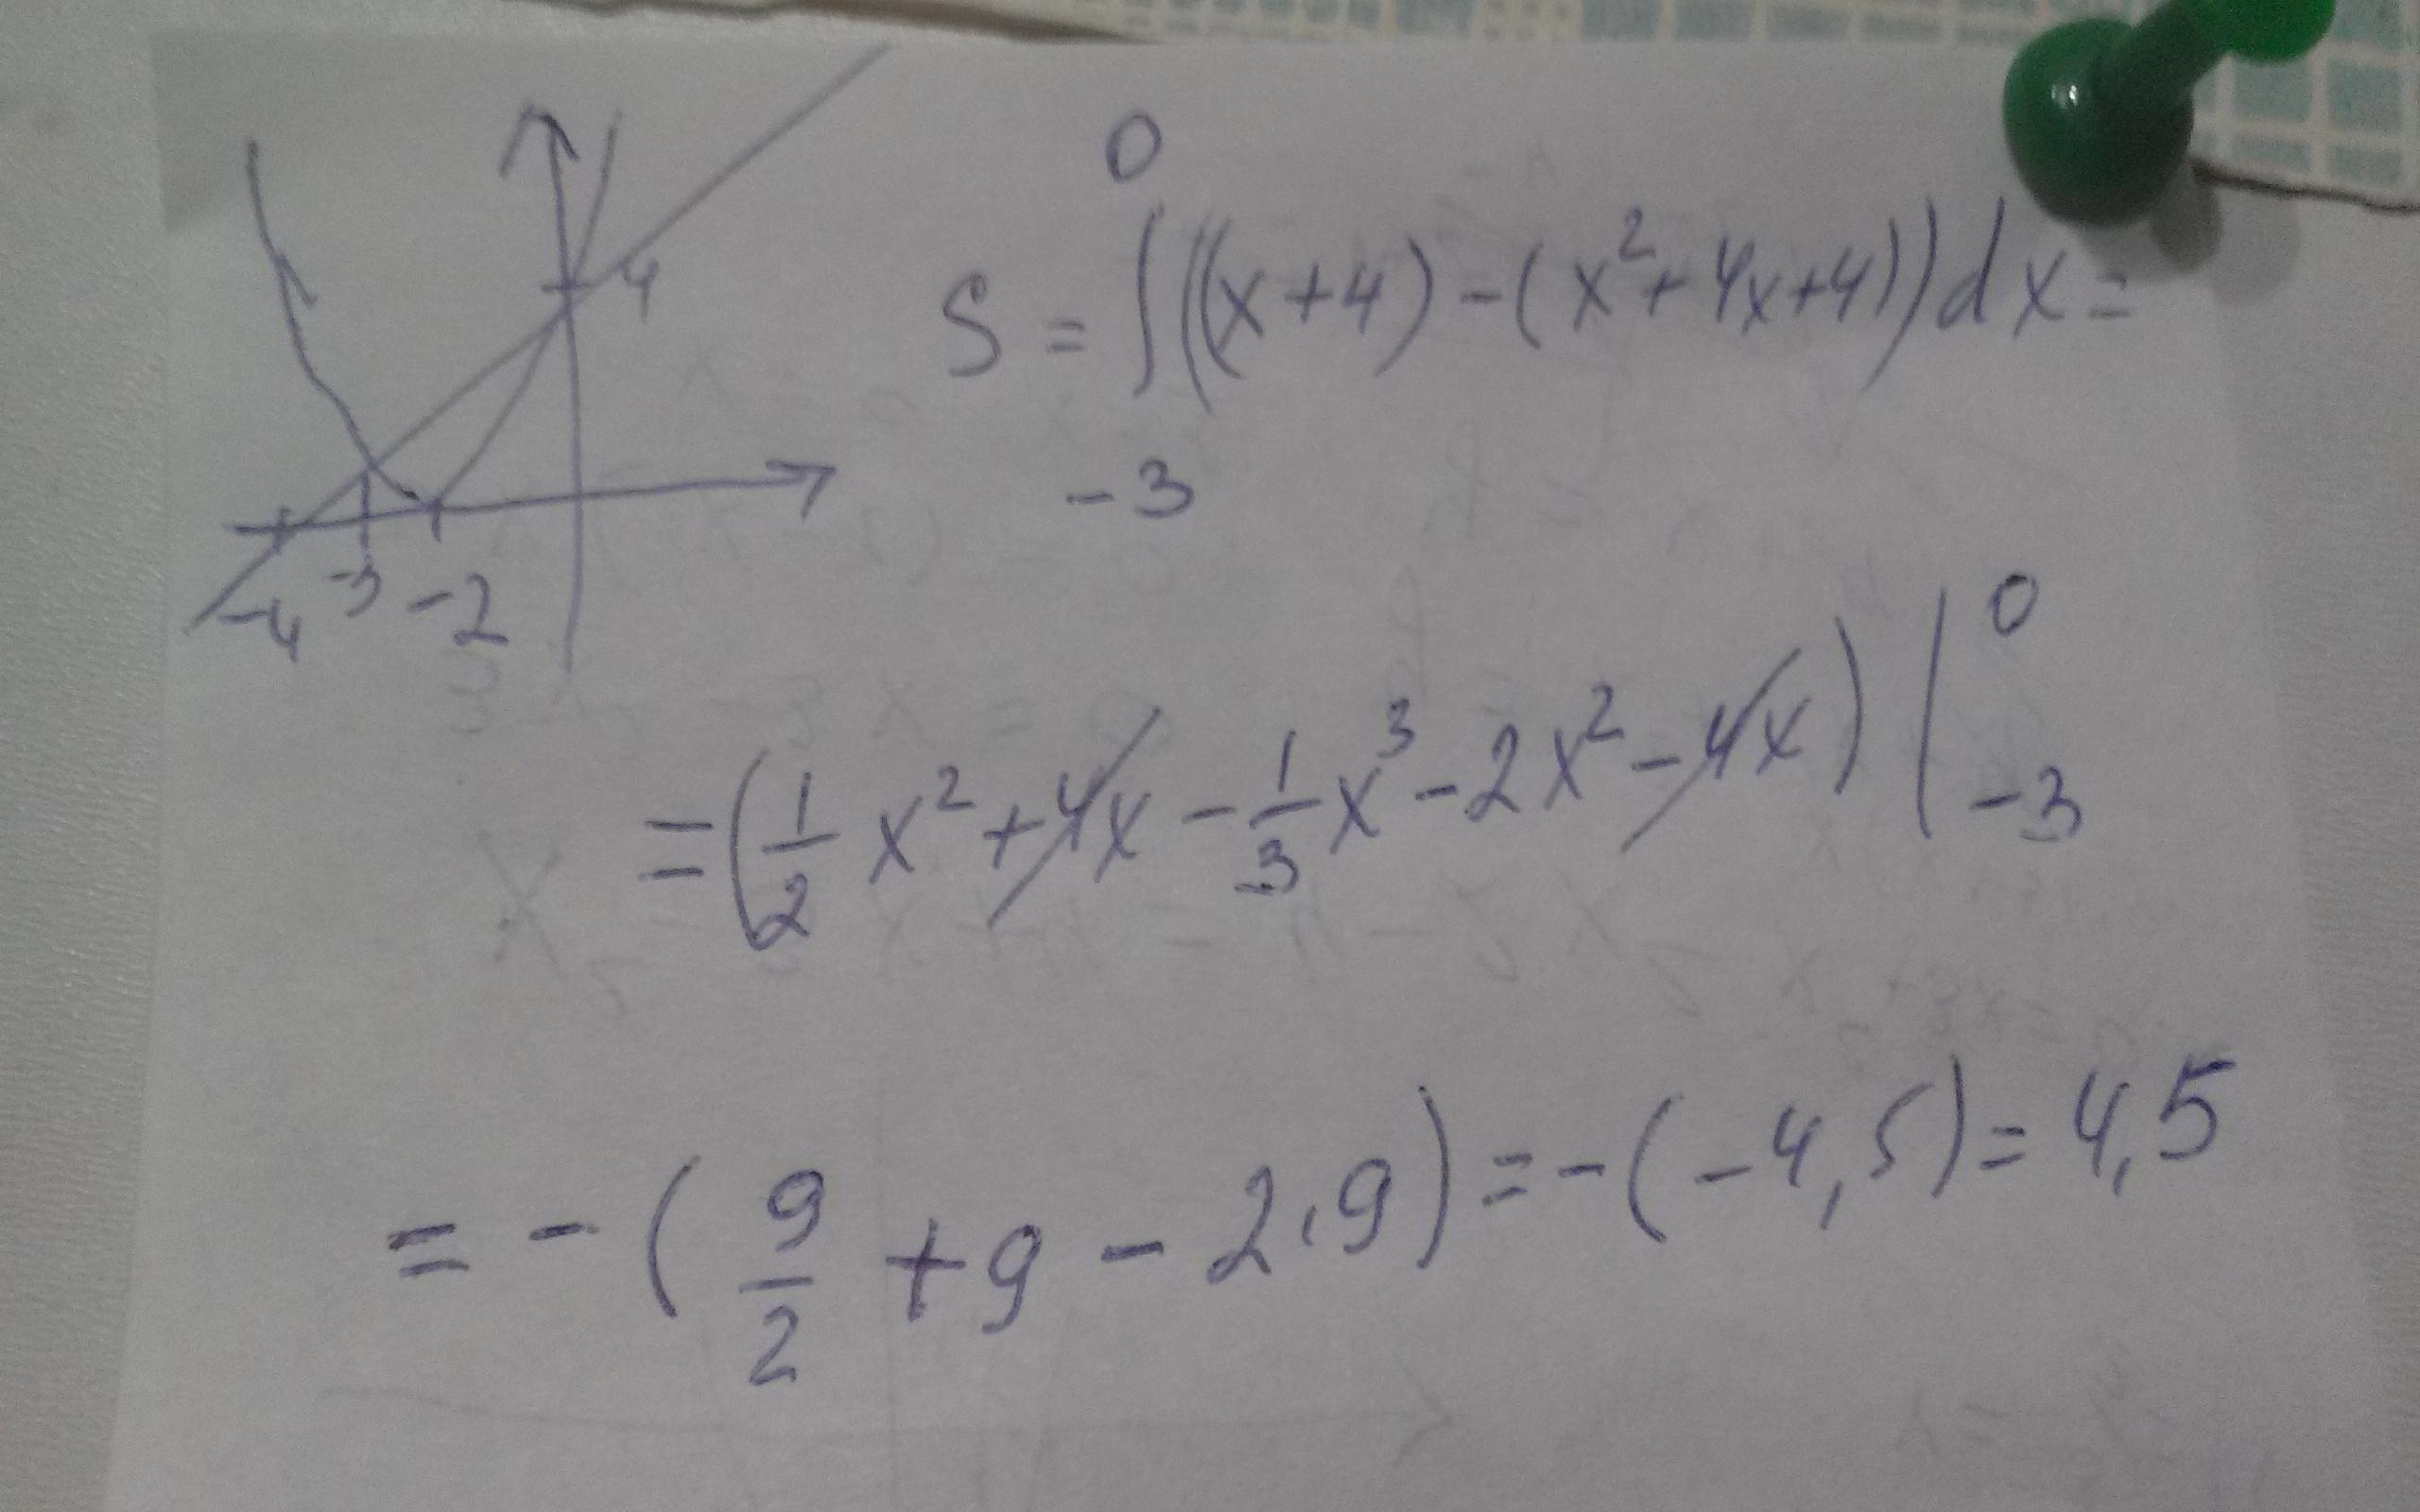 4
-4 -3 -2
S = ∫₋₃⁰ ((x+4) - (x²+4x+4)) dx =
= (1/2 x² + 4x - 1/3 x³ - 2x² - 4x) |₋₃⁰
= - (9/2 + 9 - 2·9) = - (-4,5) = 4,5